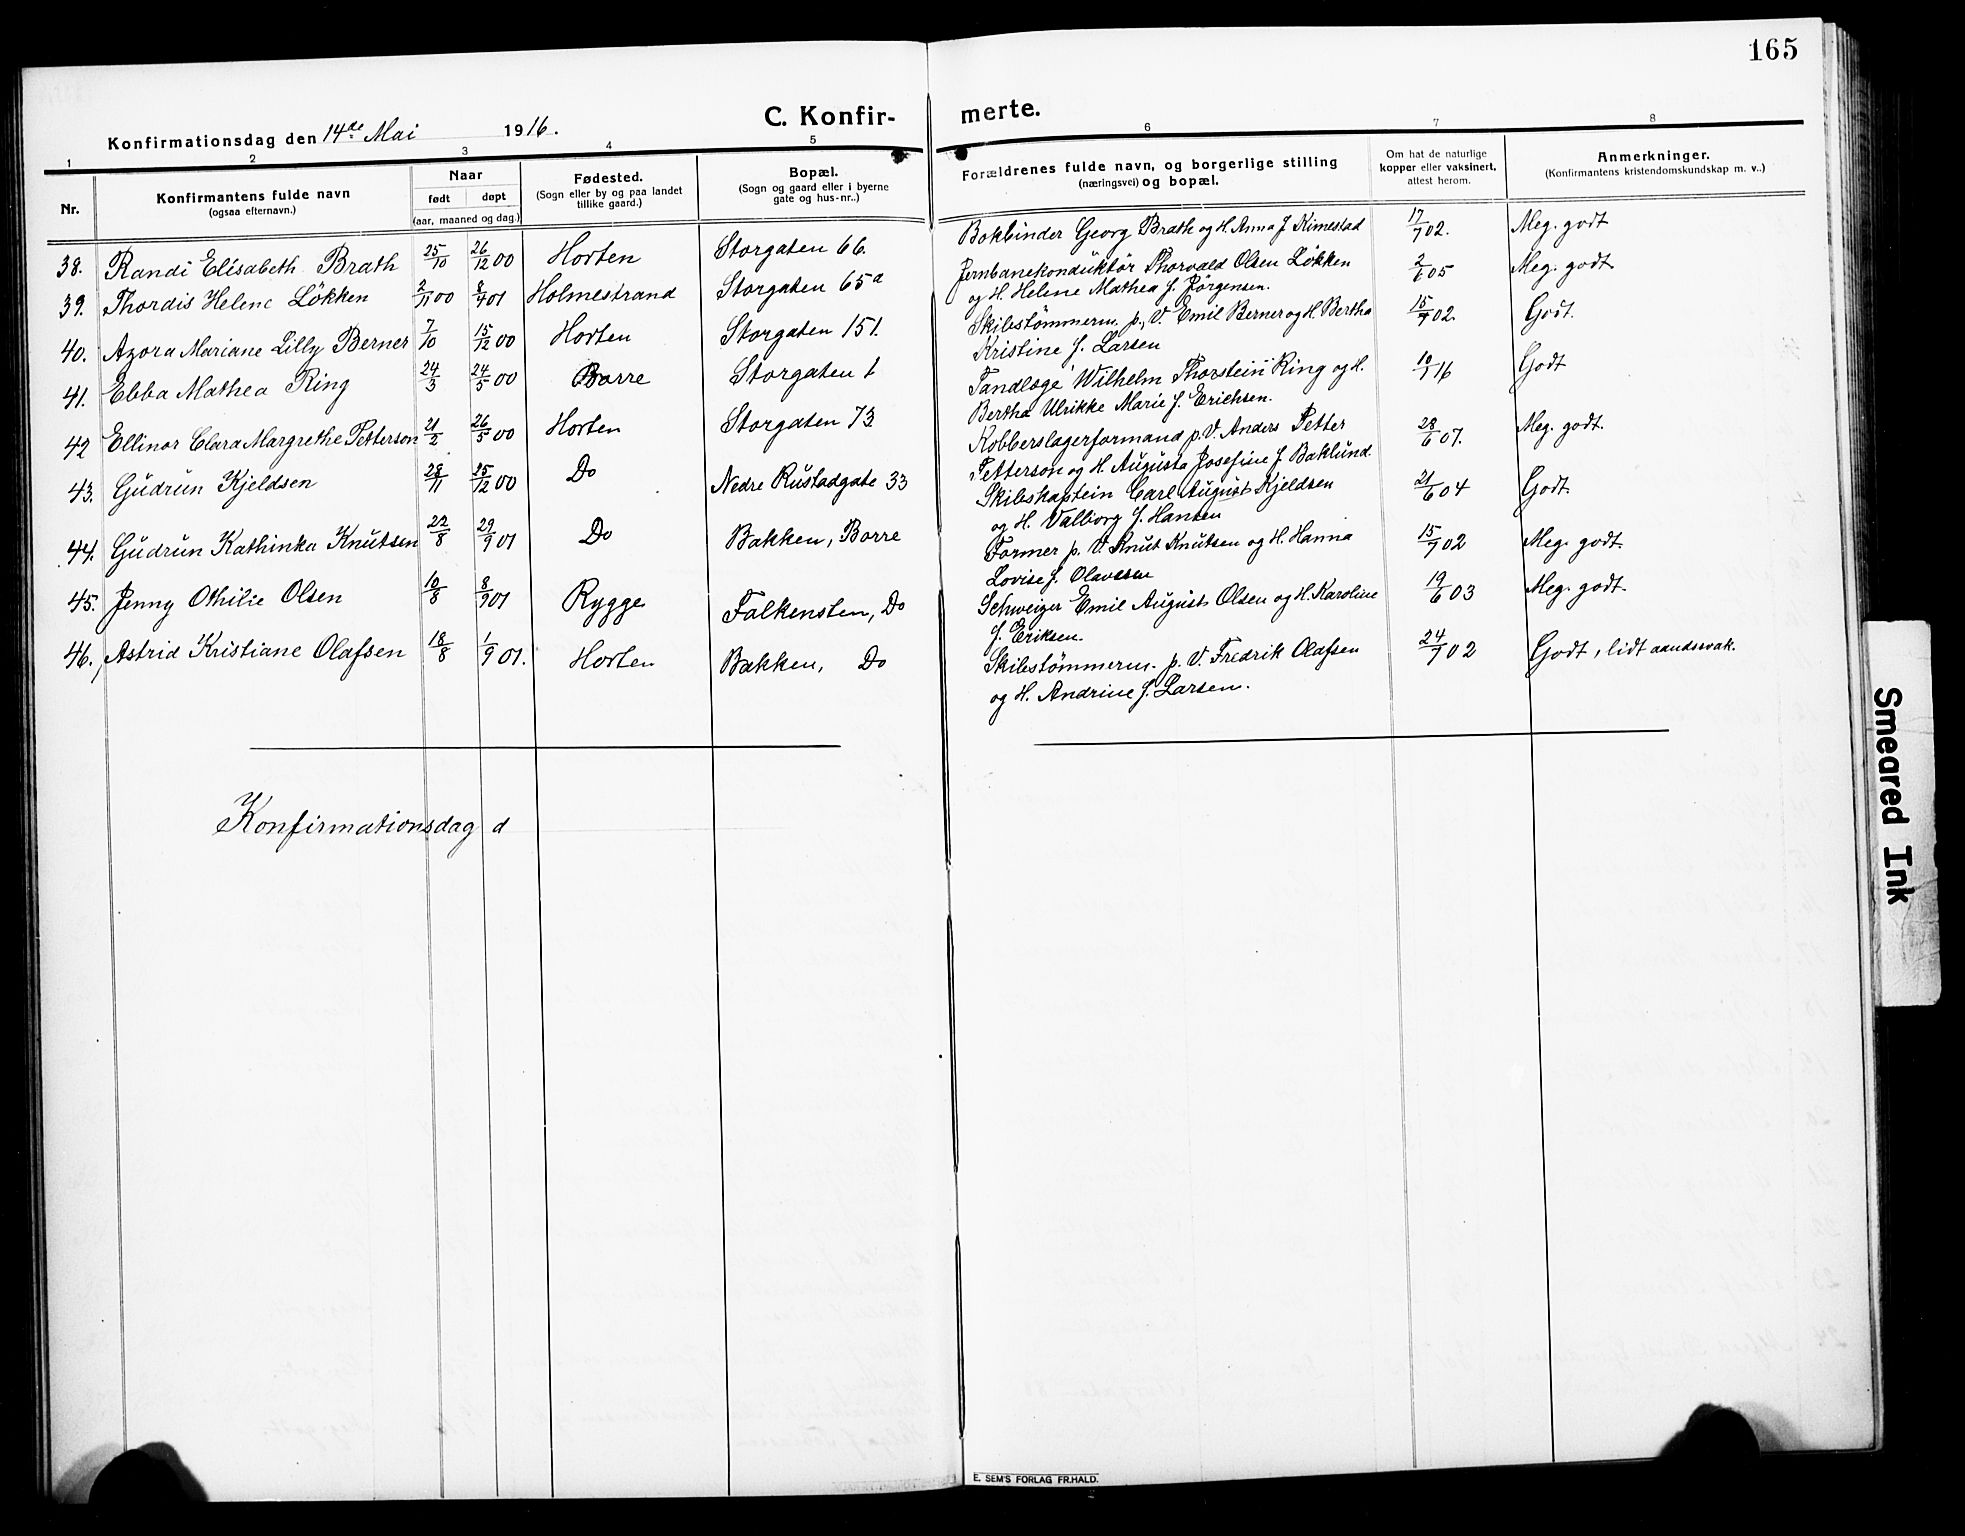 165
C. Konfir- merte.
Konfirmationsdag den 14de Mai 1916.
1 2 3 4 5 6 7 8
Nr.
Konfirmantens fulde navn
(ogsaa efternavn.)
Naar
født døpt
(aar, maaned og dag.)
Fødested.
(Sogn eller by og paa landet
tillike gaard.)
Bopæl.
(Sogn og gaard eller i byerne
gate og hus-nr..)
Forældrenes fulde navn, og borgerlige stilling
(næringsvei) og bopæl.
Om hat de naturlige
kopper eller vaksinert,
attest herom.
Anmerkninger.
(Konfirmantens kristendomskundskap m. v..)
38. Randi Elisabeth Brath 25/10 26/12 00 Horten Storgaten 66. Bokbinder Georg Brath og H. Anna f. Kimestad 17/7 02. Meg. godt
39. Thordis Helene Løkken 2/11 00 8/4 01 Holmestrand Storgaten 65a Jernbanekonduktör Thorvald Olsen Løkken 2/6 05 Meg. godt.
og H. Helene Mathea f. Jørgensen.
40. Azora Mariane Lilly Berner 7/10 15/12 00 Horten Storgaten 151. Skibstömmerm. p. V. Emil Berner og H. Bertha 15/7 02. Godt.
Kristine f. Larsen
41. Ebba Mathea Ring 24/3 24/5 00 Borre Storgaten 1 Tandlæge Wilhelm Thorstein Ring og H. 10/1 16 Godt
Bertha Ulrikke Marie f. Erichsen.
42 Ellinor Clara Margrethe Petterson 21/2 26/5 00 Horten Storgaten 73 Kobberslagerformand p. V. Anders Petter 28/6 07. Meg. godt.
Petterson og H. Augusta Josefine f. Baklund
43. Gudrun Kjeldsen 28/11 25/12 00 Do Nedre Rustadgate 33 Skibskaptein Carl August Kjeldsen 21/6 04 Godt.
og H. Valborg f. Hansen
44. Gudrun Kathinka Knutsen 22/8 29/9 01 Do Bakken, Borre Former p. V. Knut Knutsen og H. Hanna 15/7 02 Meg. godt.
Lovise f. Olavesen
45. Jenny Othilie Olsen 10/8 8/9 01 Rygge Falkensten, Do Schweizer Emil August Olsen og H. Karoline 19/6 03 Meg. godt.
f. Eriksen.
46., Astrid Kristiane Olafsen 18/8 1/9 01. Horten Bakken, Do Skibstömmerm. p. V. Fredrik Olafsen 24/7 02 Godt, lidt aandssvak.
og H. Andrine f. Larsen.
Konfirmationsdag d
E. SEM'S FORLAG FR.HALD.
Smeared Ink